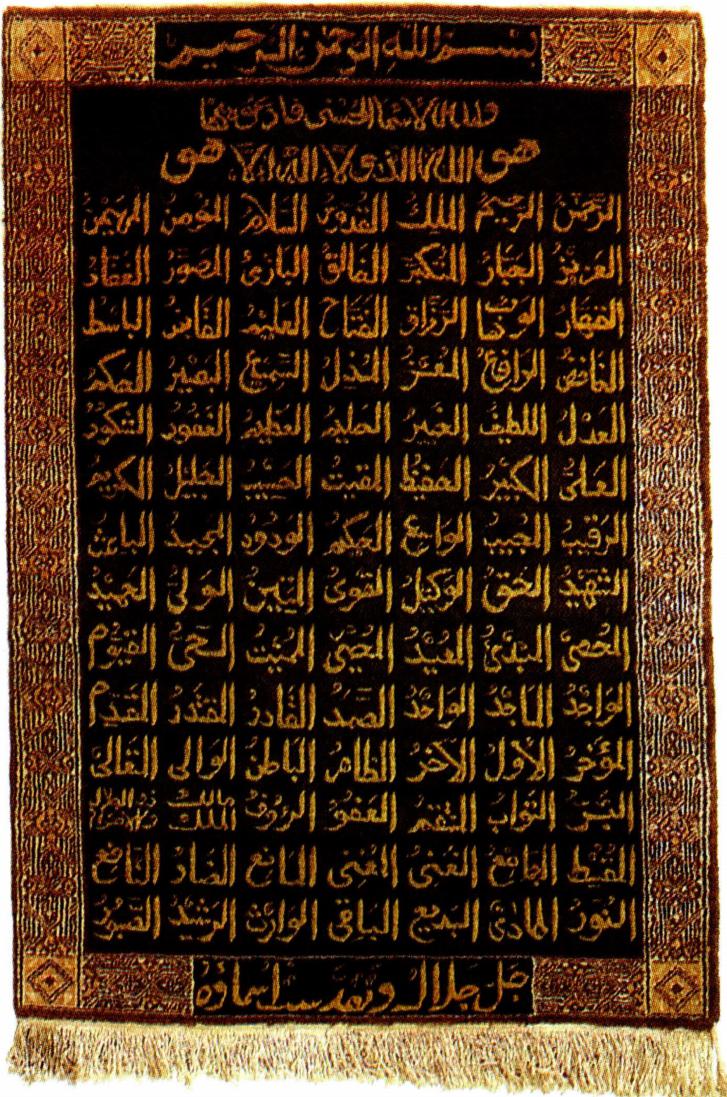 بسم الله الرحمن الرحيم
ولله الاسما الحسنى فادعوه بها
هو الله الذي لا اله الا هو
الرَّحمنُ الرَّحيمُ المَلِكُ القدّوسُ السَّلامُ المؤمنُ المهيمنُ
العَزيزُ الجبّارُ المتكبّرُ الخالقُ البارئُ المصوّرُ الغفّارُ
القهّارُ الوهّابُ الرّزّاقُ الفتّاحُ العليمُ القابضُ الباسط
الخافضُ الرافعُ المعزُّ المُذلُّ السَّميعُ البصيرُ الحكمُ
العَدلُ اللطيفُ الخبيرُ الحليمُ العظيمُ الغفورُ الشكورُ
العليُّ الكبيرُ الحفيظُ المقيتُ الحسيبُ الجليلُ الكريمُ
الرقيبُ المجيبُ الواسعُ الحكيمُ الودودُ المجيدُ الباعثُ
الشهيدُ الحقُّ الوكيلُ القويُّ المتينُ الوليُّ الحميدُ
المحصيُ المبدئُ المعيدُ المحييُ المميتُ الحيُّ القيّوم
الواجدُ الماجدُ الواحدُ الصمدُ القادرُ المقتدرُ المقدّم
المؤخّرُ الأوّلُ الآخرُ الظاهرُ الباطنُ الوالي المتعالي
البَرُّ التوابُ المنتقمُ العفوُّ الرؤوفُ مالك الملك ذو الجلال والاكرام
المقسطُ الجامعُ الغنيُّ المغني المانعُ الضارُّ النافعُ
النّورُ الهاديُ البديعُ الباقي الوارثُ الرشيدُ الصّبورُ
جل جلاله وتقدست اسماؤه